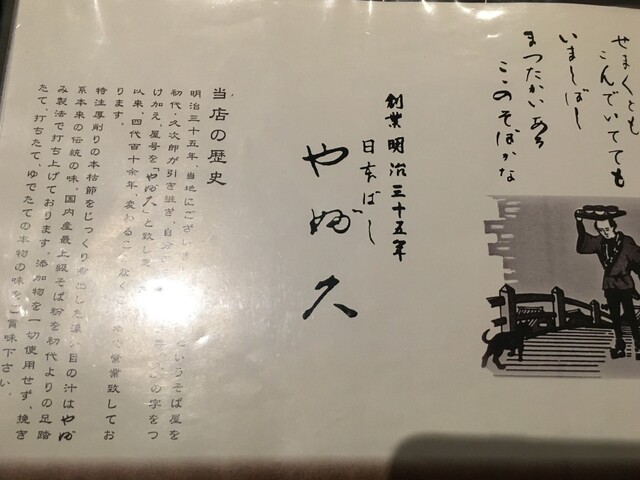 せまくとも
こんでいてても
いましばし
まつたかいある
ここのそばかな
創業明治三十五年
日本ばし
やぶ久
当店の歴史
明治三十五年、当地にございま というそば屋を
初代・久次郎が引き継ぎ、自分 の字をつ
け加え、屋号を「やぶ久」と致しま
以来、四代百十余年、変わることなくこ 営業致してお
ります。
特注厚削りの本枯節をじっくり 出した濃い目の汁はやぶ
系本来の伝統の味、国内産最上級そば粉を初代よりの足踏
み製法で打ち上げております。添加物を一切使用せず、挽き
たて、打ちたて、ゆでたての本物の味をご賞味下さい。